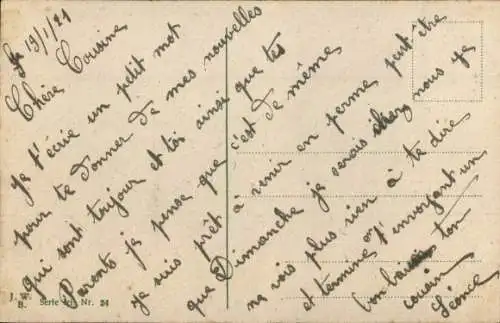 Le 19/1/21
Chère Cousine
Je t'écrie un petit mot
pour te donner de mes nouvelles
qui sont toujour et toi ainsi que tes
Parents je pense que c'est de même
je suis prêt à venir en perme peut-être
que Dimanche je serais chez nous je
ne vois plus rien à te dire
et termine en t'envoyant un
bon ton
cousin
Léonce
J. W.
B. Serie Nr. 24